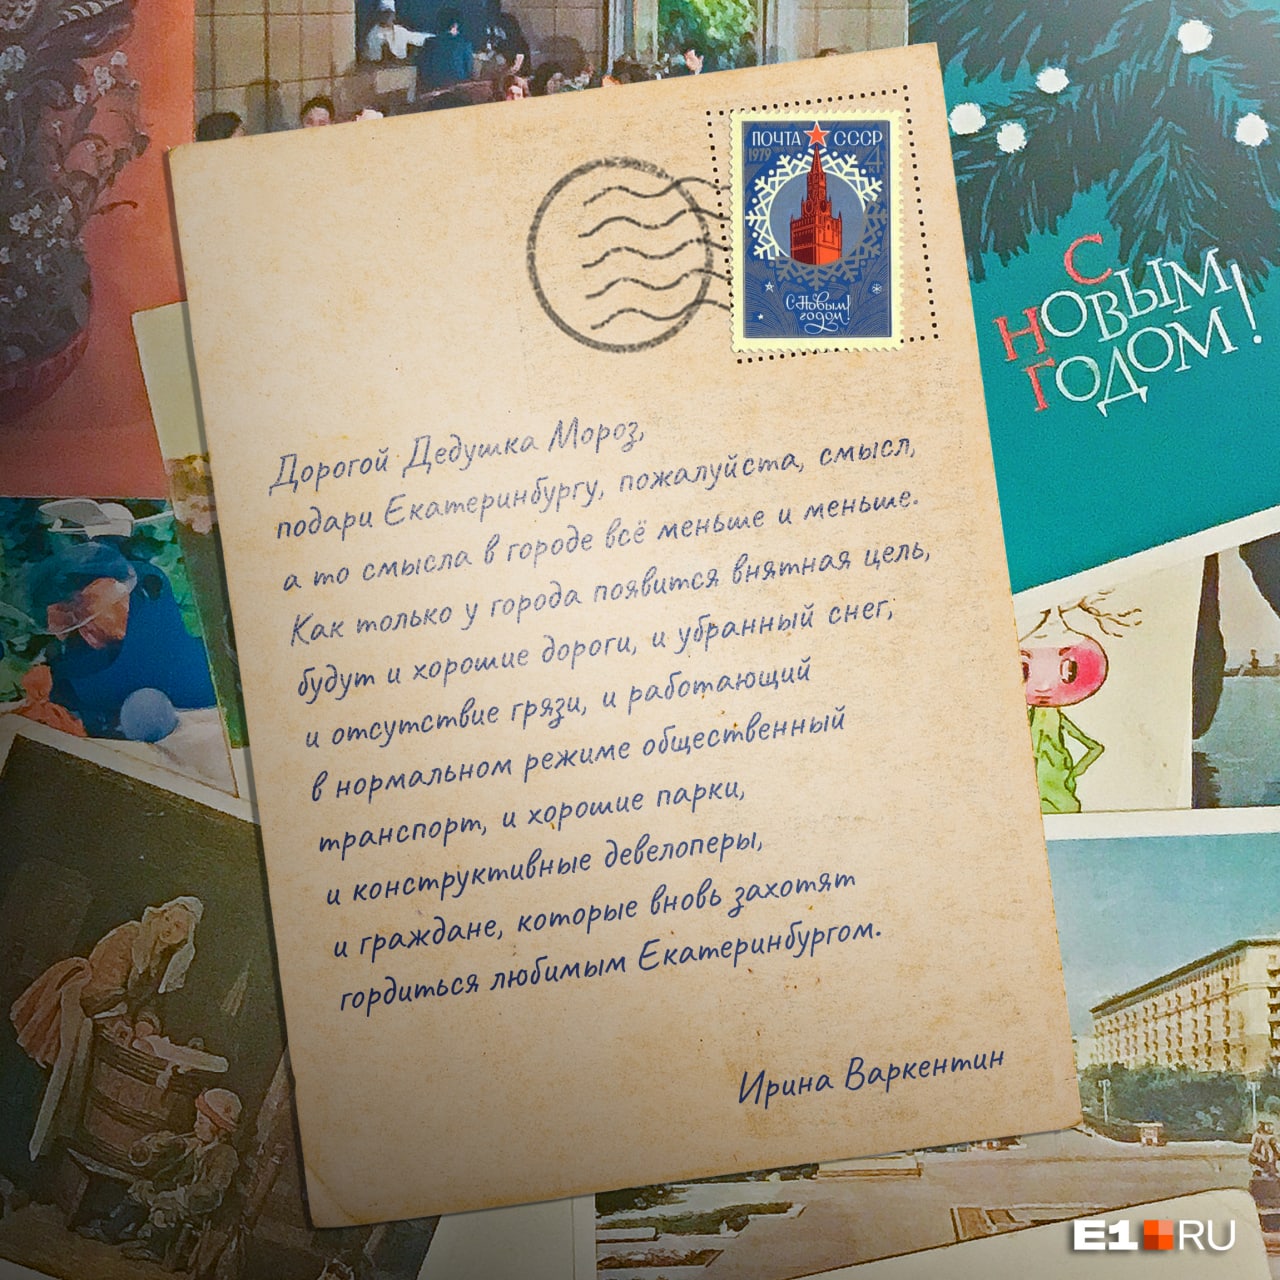 ПОЧТА СССР
1979 4к
С Новым
годом!
С
НОВЫМ
ГОДОМ!
Дорогой Дедушка Мороз,
подари Екатеринбургу, пожалуйста, смысл,
а то смысла в городе всё меньше и меньше.
Как только у города появится внятная цель,
будут и хорошие дороги, и убранный снег,
и отсутствие грязи, и работающий
в нормальном режиме общественный
транспорт, и хорошие парки,
и конструктивные девелоперы,
и граждане, которые вновь захотят
гордиться любимым Екатеринбургом.
Ирина Варкентин
E1 RU